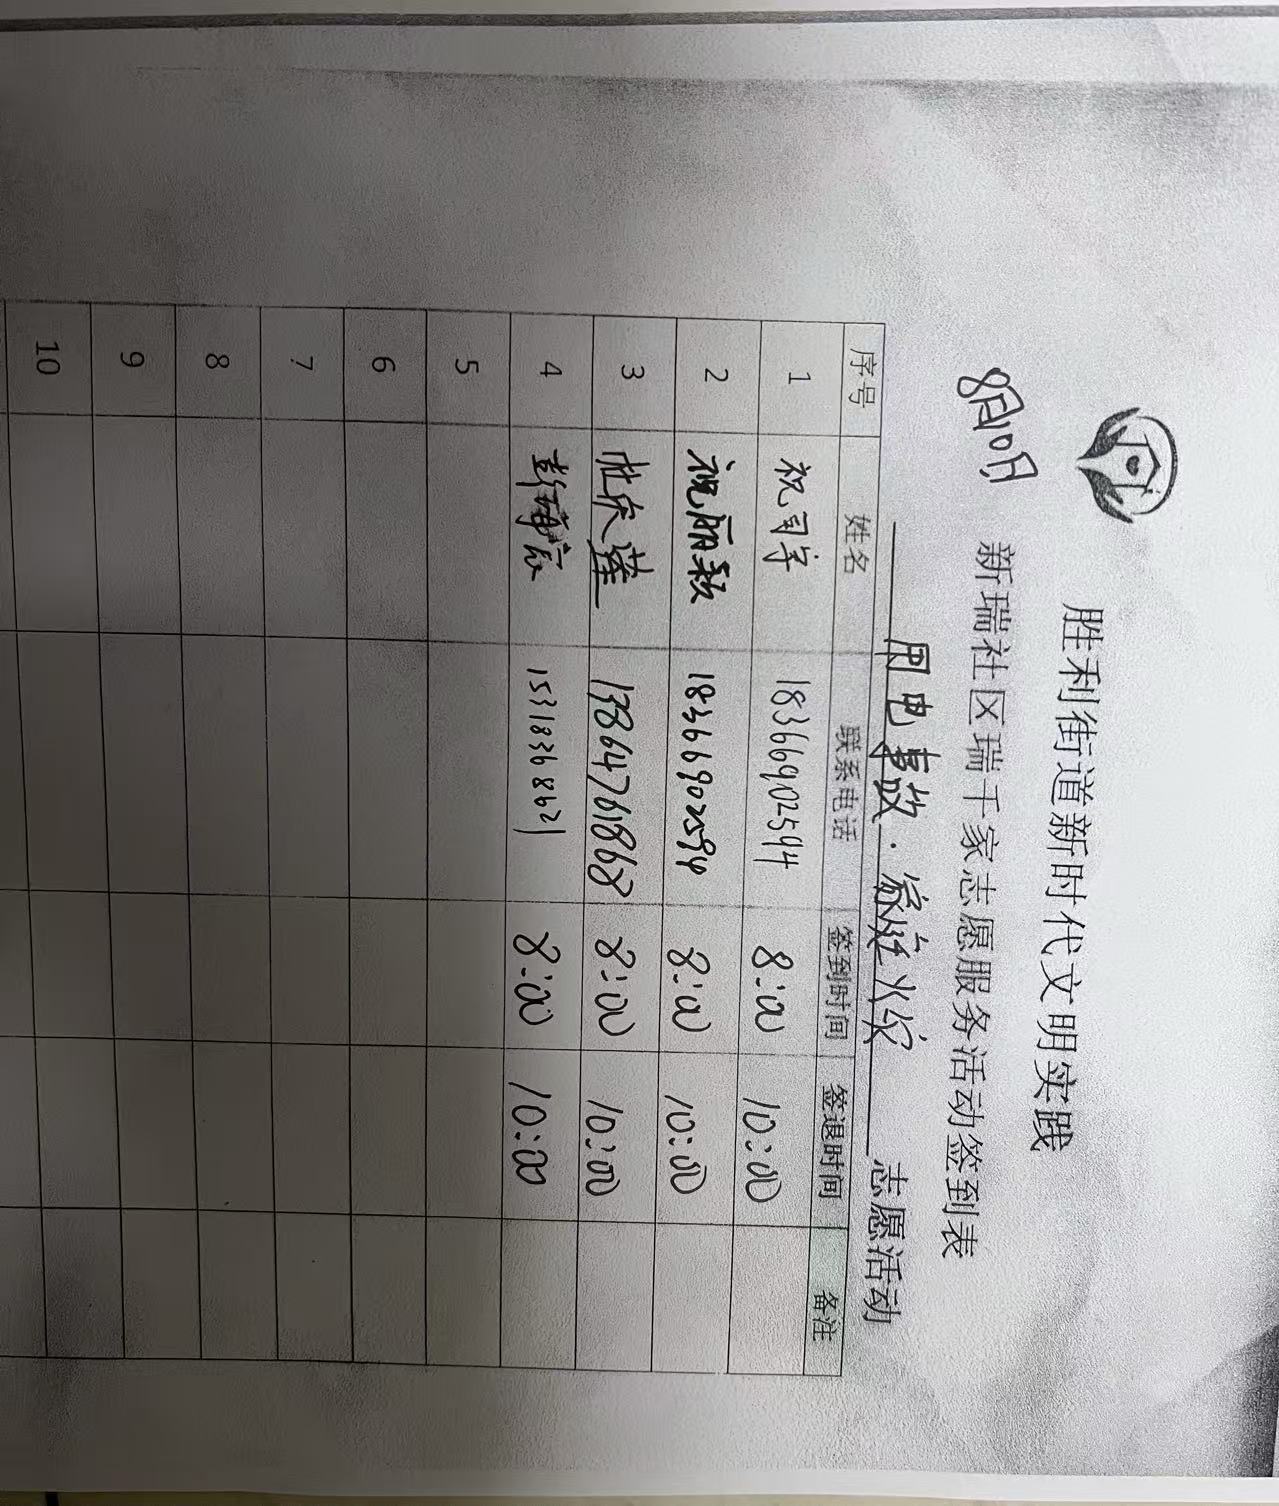 胜利街道新时代文明实践
新瑞社区瑞千家志愿服务活动签到表
8月10日
用电事故.家庭火灾 志愿活动
序号 姓名 联系电话 签到时间 签退时间 备注
1 祝司宇 18366902594 8:00 10:00
2 祝丽颖 18366902594 8:00 10:00
3 杜庆莲 13864761868 8:00 10:00
4 15318368621 8:00 10:00
5
6
7
8
9
10